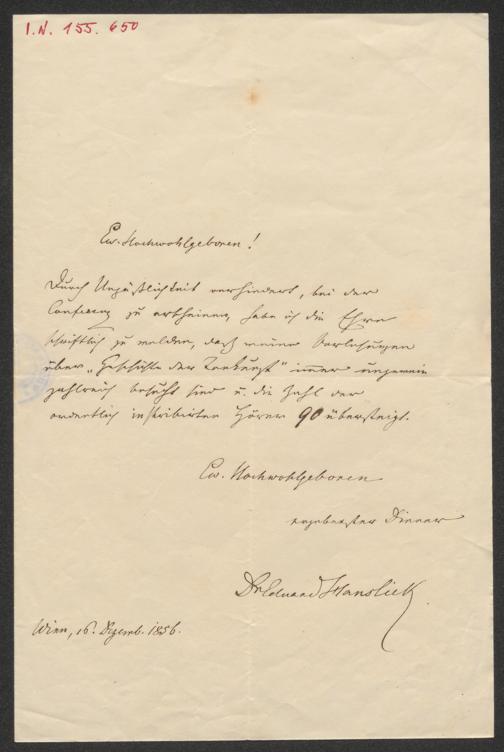 I.N. 155.650
Ew. Hochwohlgeboren!
Durch Unpäßlichkeit verhindert, bei der
Conferenz zu erscheinen, habe ich die Ehre
schriftlich zu melden, daß meine Vorlesungen
über „Geschichte der Tonkunst" immer ungemein
zahlreich besucht sind u. die Zahl der
ordentlich inskribirten Hörer 90 übersteigt.
Ew. Hochwohlgeboren
ergebenster Diener
Dr Eduard Hanslick
Wien, 16. Dezemb. 1856.